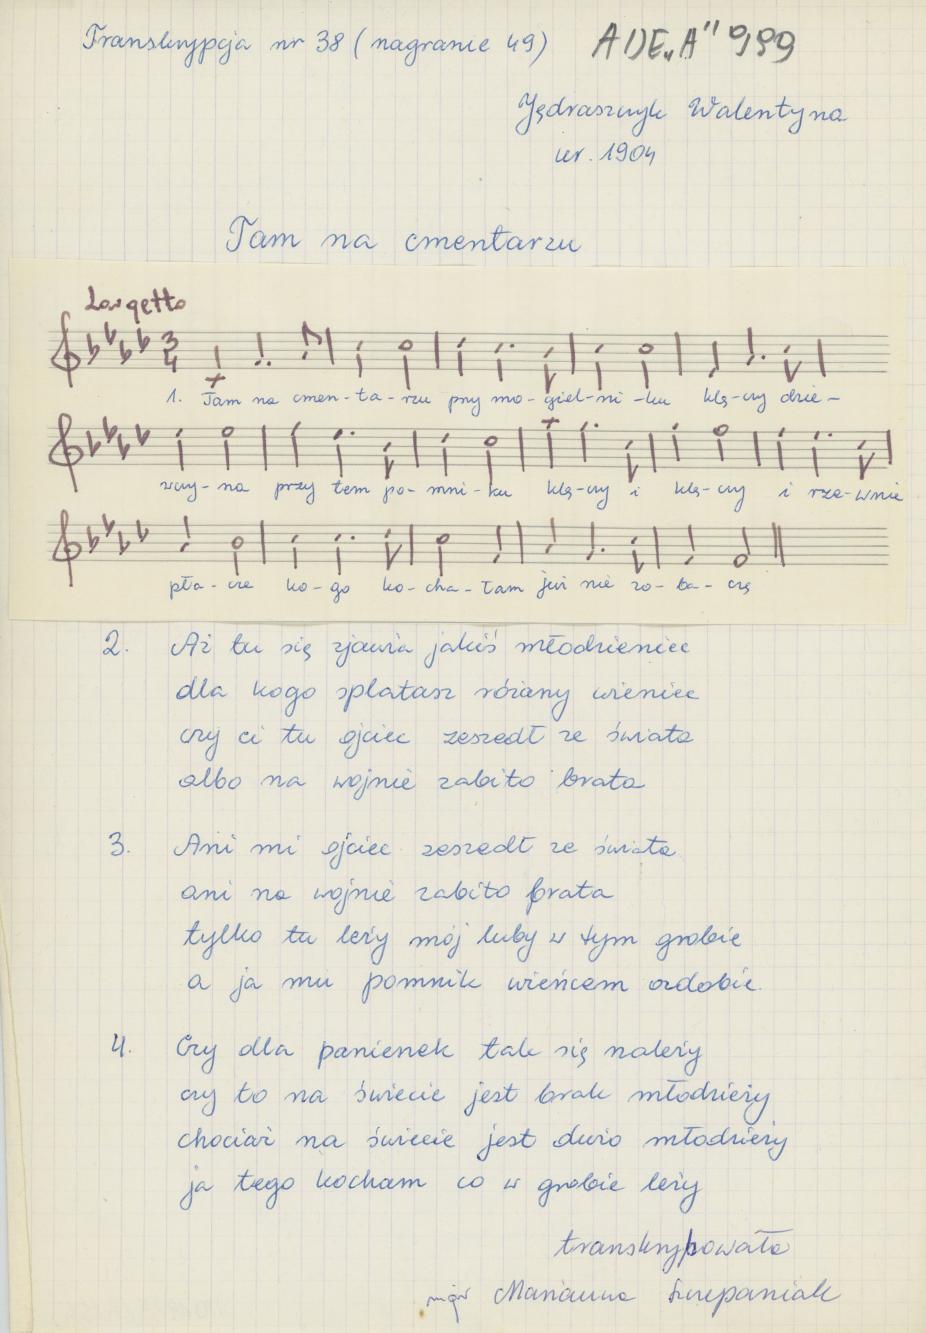 Transkrypcja nr 38 (nagranie 49) AIJE„A" 999
Jędraszczyk Walentyna
ur. 1904
Tam na cmentarzu
Larghetto
3
4
1. Tam na cmen-ta-rzu przy mo-giel-ni-ku klę-czy dzie-
wczy-na przy tem po-mni-ku klę-czy i klę-czy i rze-wnie
pła-cze ko-go ko-cha-łam już nie zo-ba-czę
2. Aż tu się zjawia jakiś młodzieniec
dla kogo splatasz różany wieniec
czy ci tu ojciec zeszedł ze świata
albo na wojnie zabito brata
3. Ani mi ojciec zeszedł ze świata
ani na wojnie zabito brata
tylko tu leży mój luby w tym grobie
a ja mu pomnik wieńcem ozdobie.
4. Czy dla panienek tak się należy
czy to na świecie jest brak młodzieży
chociaż na świecie jest dużo młodzieży
ja tego kocham co w grobie leży
transkrybowała
mgr Marianna Szczepaniak